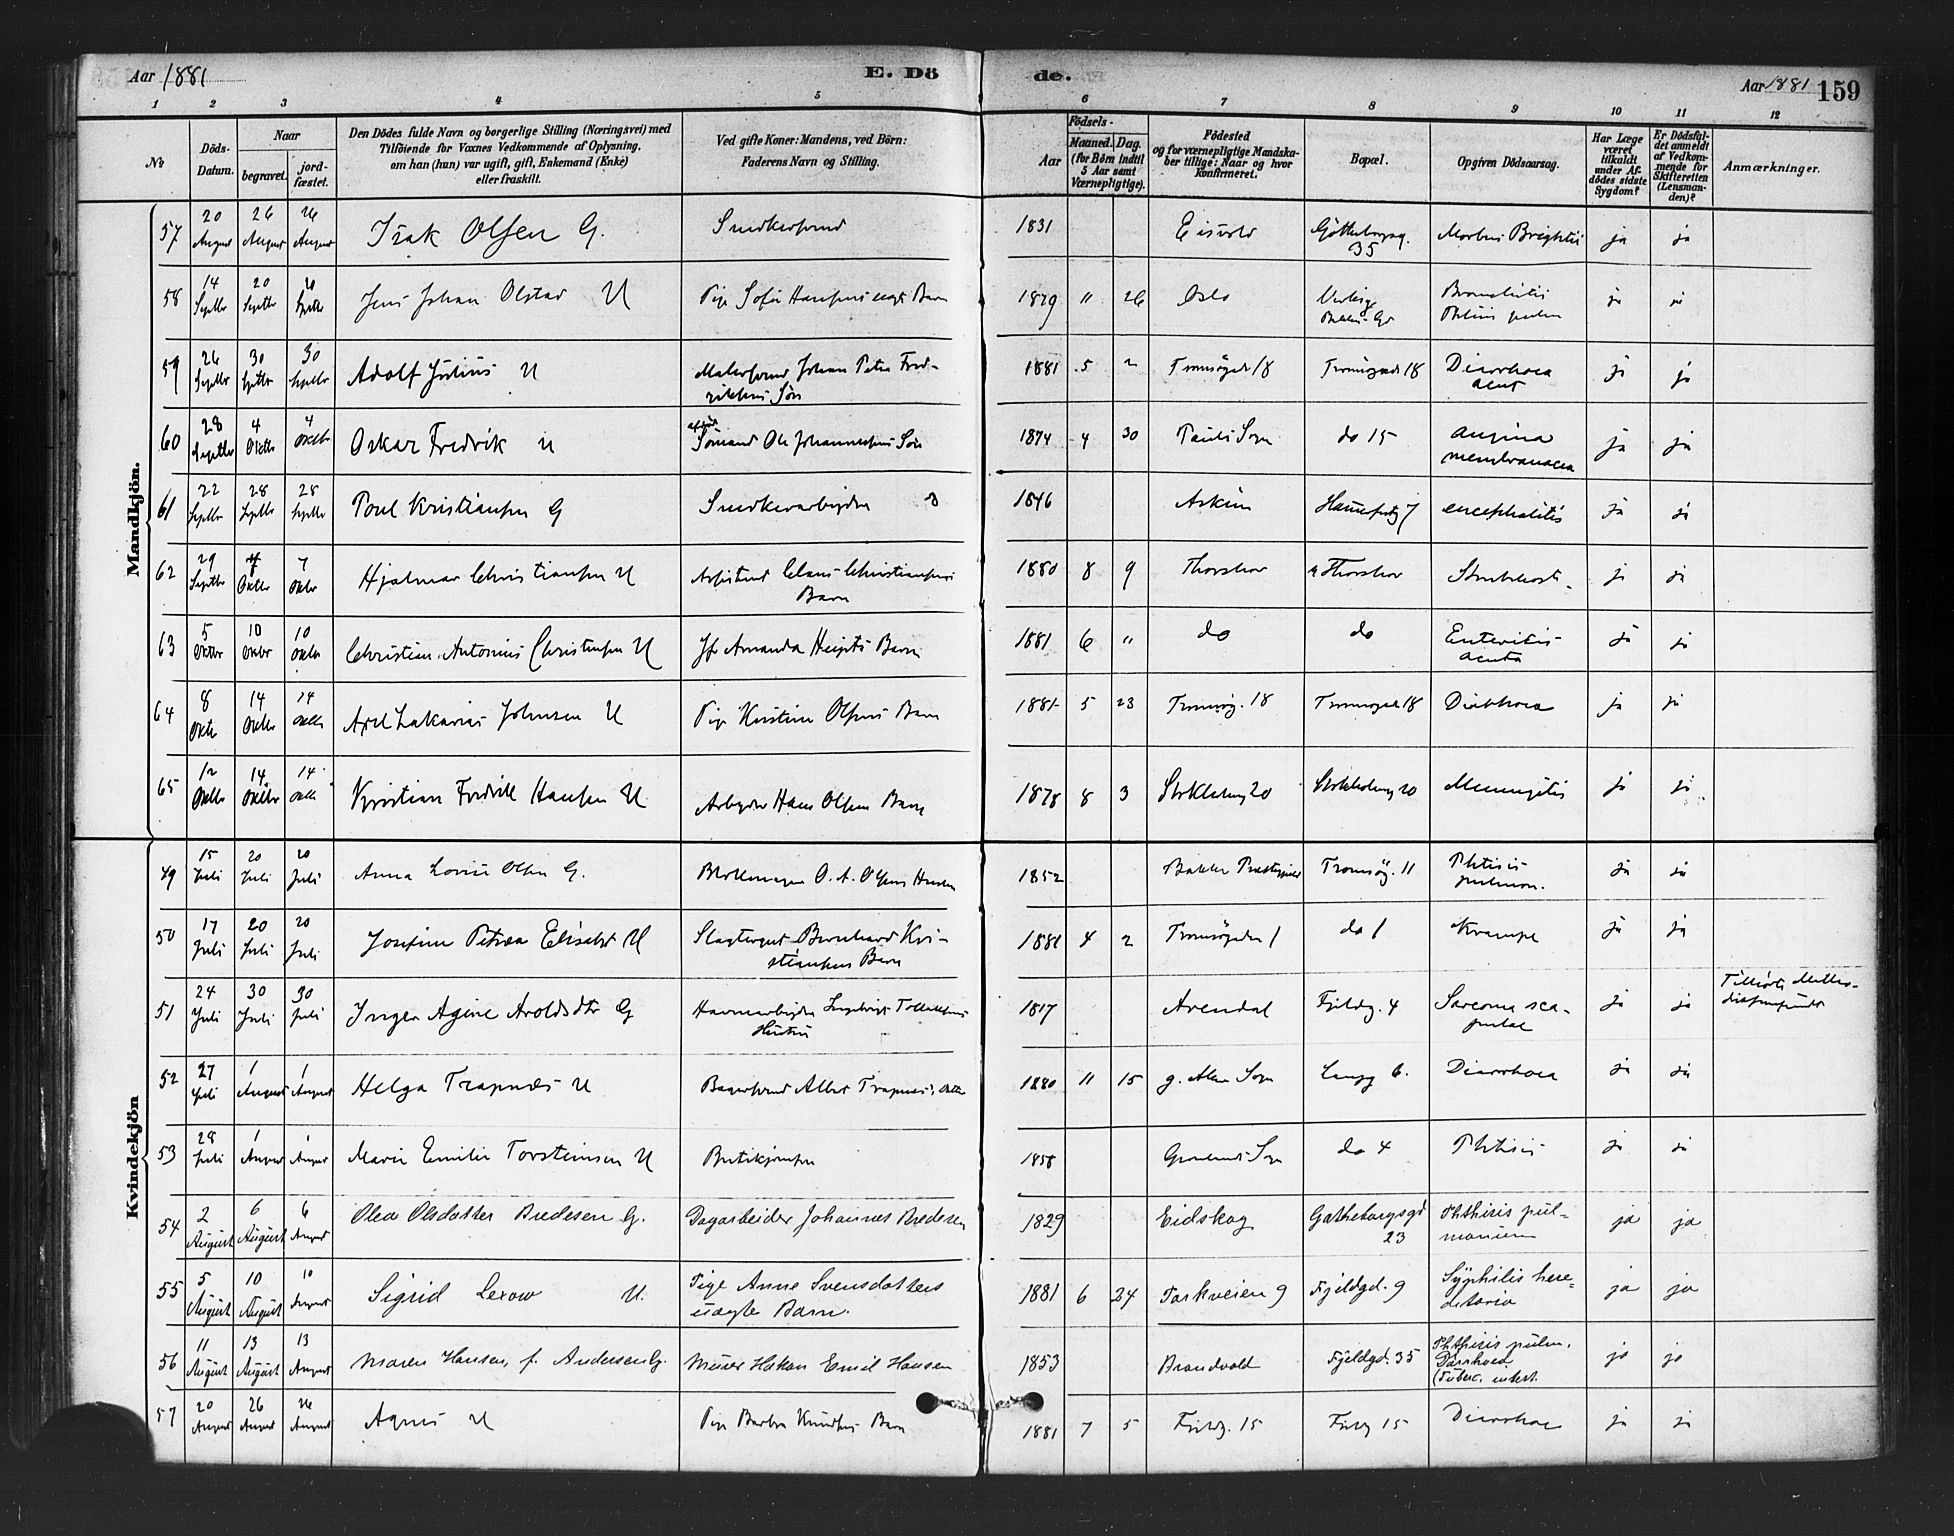 Aar 1881
E. Dö
de.
Aar 1881 159
1 2 3 4 5 6 7 8 9 10 11 12
No
Döds-
Datum.
Naar
begravet.
jord-
fæstet.
Den Dödes fulde Navn og borgerlige Stilling (Næringsvei) med
Tilföiende for Voxnes Vedkommende af Oplysning,
om han (hun) var ugift, gift, Enkemand (Enke)
eller fraskilt.
Ved gifte Koner: Mandens, ved Börn:
Faderens Navn og Stilling.
Födsels-
Aar
Maaned. Dag.
(for Börn indtil
5 Aar samt
Værnepligtige).
Födested
og for værnepligtige Mandska-
ber tillige: Naar og hvor
konfirmeret.
Bopæl.
Opgiven Dödsaarsag.
Har Læge
været
tilkaldt
under Af-
dödes sidste
Sygdom?
Er Dödsfal-
det anmeldt
af Vedkom-
mende for
Skifteretten
(Lensman-
den)?
Anmærkninger.
Mandkjön.
57 20 August 26 August 26 August Isak Olsen G. Snedkersvend 1831 Eidsvold Götteborgsg. 35 Morbus Brightii ja ja
58 14 Septbr 20 Septbr 20 Septbr Jens Johan Olstad U Pige Sofie Hansens uægte Barn 1879 11 26 Oslo Bronchitis Phtisis pulm ja ja
59 26 Septbr 30 Septbr 30 Septbr Adolf Julius U Malersvend Johan Peter Fred-
riksens Sön 1881 5 2 Tromsögade 18 Tromsögade 18 Diarrhoea
acut ja ja
60 28 Septbr 4 Oktbr 4 Oktbr Oskar Fredrik U Sömand Ole Johannesens Sön 1874 4 30 Pauls Sogn do 15 Angina
membranacea ja ja
61 22 Septbr 28 Septbr 28 Septbr Poul Kristiansen G Snedkerarbejder 1846 Askim encephalitis ja ja
62 29 Septbr Oktbr 7 Oktbr Hjalmar Christiansen U Assistent Claus Christiansens
Barn 1880 8 9 Thorshov Thorshov Strubehoste ja ja
63 5 Oktbr 10 Oktbr 10 Oktbr Christian Antonius Christensen U Jfr Amanda Barn 1881 6 " do do Enteritis
acuta ja ja
64 8 Oktbr 14 Oktbr 14 Oktbr Axel Zakarias Johnsen U Pige Kristine Olsens Barn 1881 5 23 Tromsög. 18 Tromsögade 18 Diarrhoea ja ja
65 12 Oktbr 14 Oktbr 14 Oktbr Kristian Fredrik Hansen U Arbejder Hans Olsens Barn 1878 8 3 Stokholmg 20 Stokholmg 20 Meningitis ja ja
Kvindekjön
49 15 Juli 20 Juli 20 Juli Anna Lovise Olsen G. O. A. Olsens Hustru 1852 Bakke Præstegjeld Tromsög. 11 Phtisis
pulmon. ja ja
50 17 Juli 20 Juli 20 Juli Josefine Petrea Elisabet U Slagtersvt Bernhard Kri-
stiansens Barn 1881 4 2 Tromsögaden 1 do 1 Krampe ja ja
51 24 Juli 30 Juli 30 Juli Inger Agine Aroldsdtr G Havnearbejder Tollefsens
Hustru 1817 Arendal Fjeldg. 4 Sarcoma sca-
pulae ja ja Tilhörte Metho-
distsamfundet
52 27 Juli 1 August 1 August Helga Trapnæs U Bagersvend Albert Trapnæs's Datter 1880 11 15 g. Aker Sogn Langg 6. Diarrhoea ja ja
53 28 Juli 1 August 1 August Marie Emilie Torsteinsen U Butikjomfru 1858 Grönlands Sogn do 4 Phtisis ja ja
54 2 August 6 August 6 August Olea Olsdatter Bredesen G. Dagarbeider Johannes Bredesen 1829 Eidskog Gøtheborgsgd
23 Phthisis pul-
monum ja ja
55 5 August 10 August 10 August Sigrid Lexow U. Pige Anne Svensdatters
uægte Barn. 1881 6 24 Parkveien 9 Fjeldgd. 9 Syphilis here-
ditaria ja ja
56 11 August 13 August 13 August Maren Hansen, f. Andersen G. Murer Hakon Emil Hansen 1853 Brandvold Fjeldgd. 35 Phthisis pulm.
Diarrhoea
(Tuberc. intest. ja ja
57 20 August 26 August 26 August Agnes U Pige Barbra Knudsens Barn 1881 7 5 Fjeldg. 15 Fjeldg 15 Diarrhoea ja ja